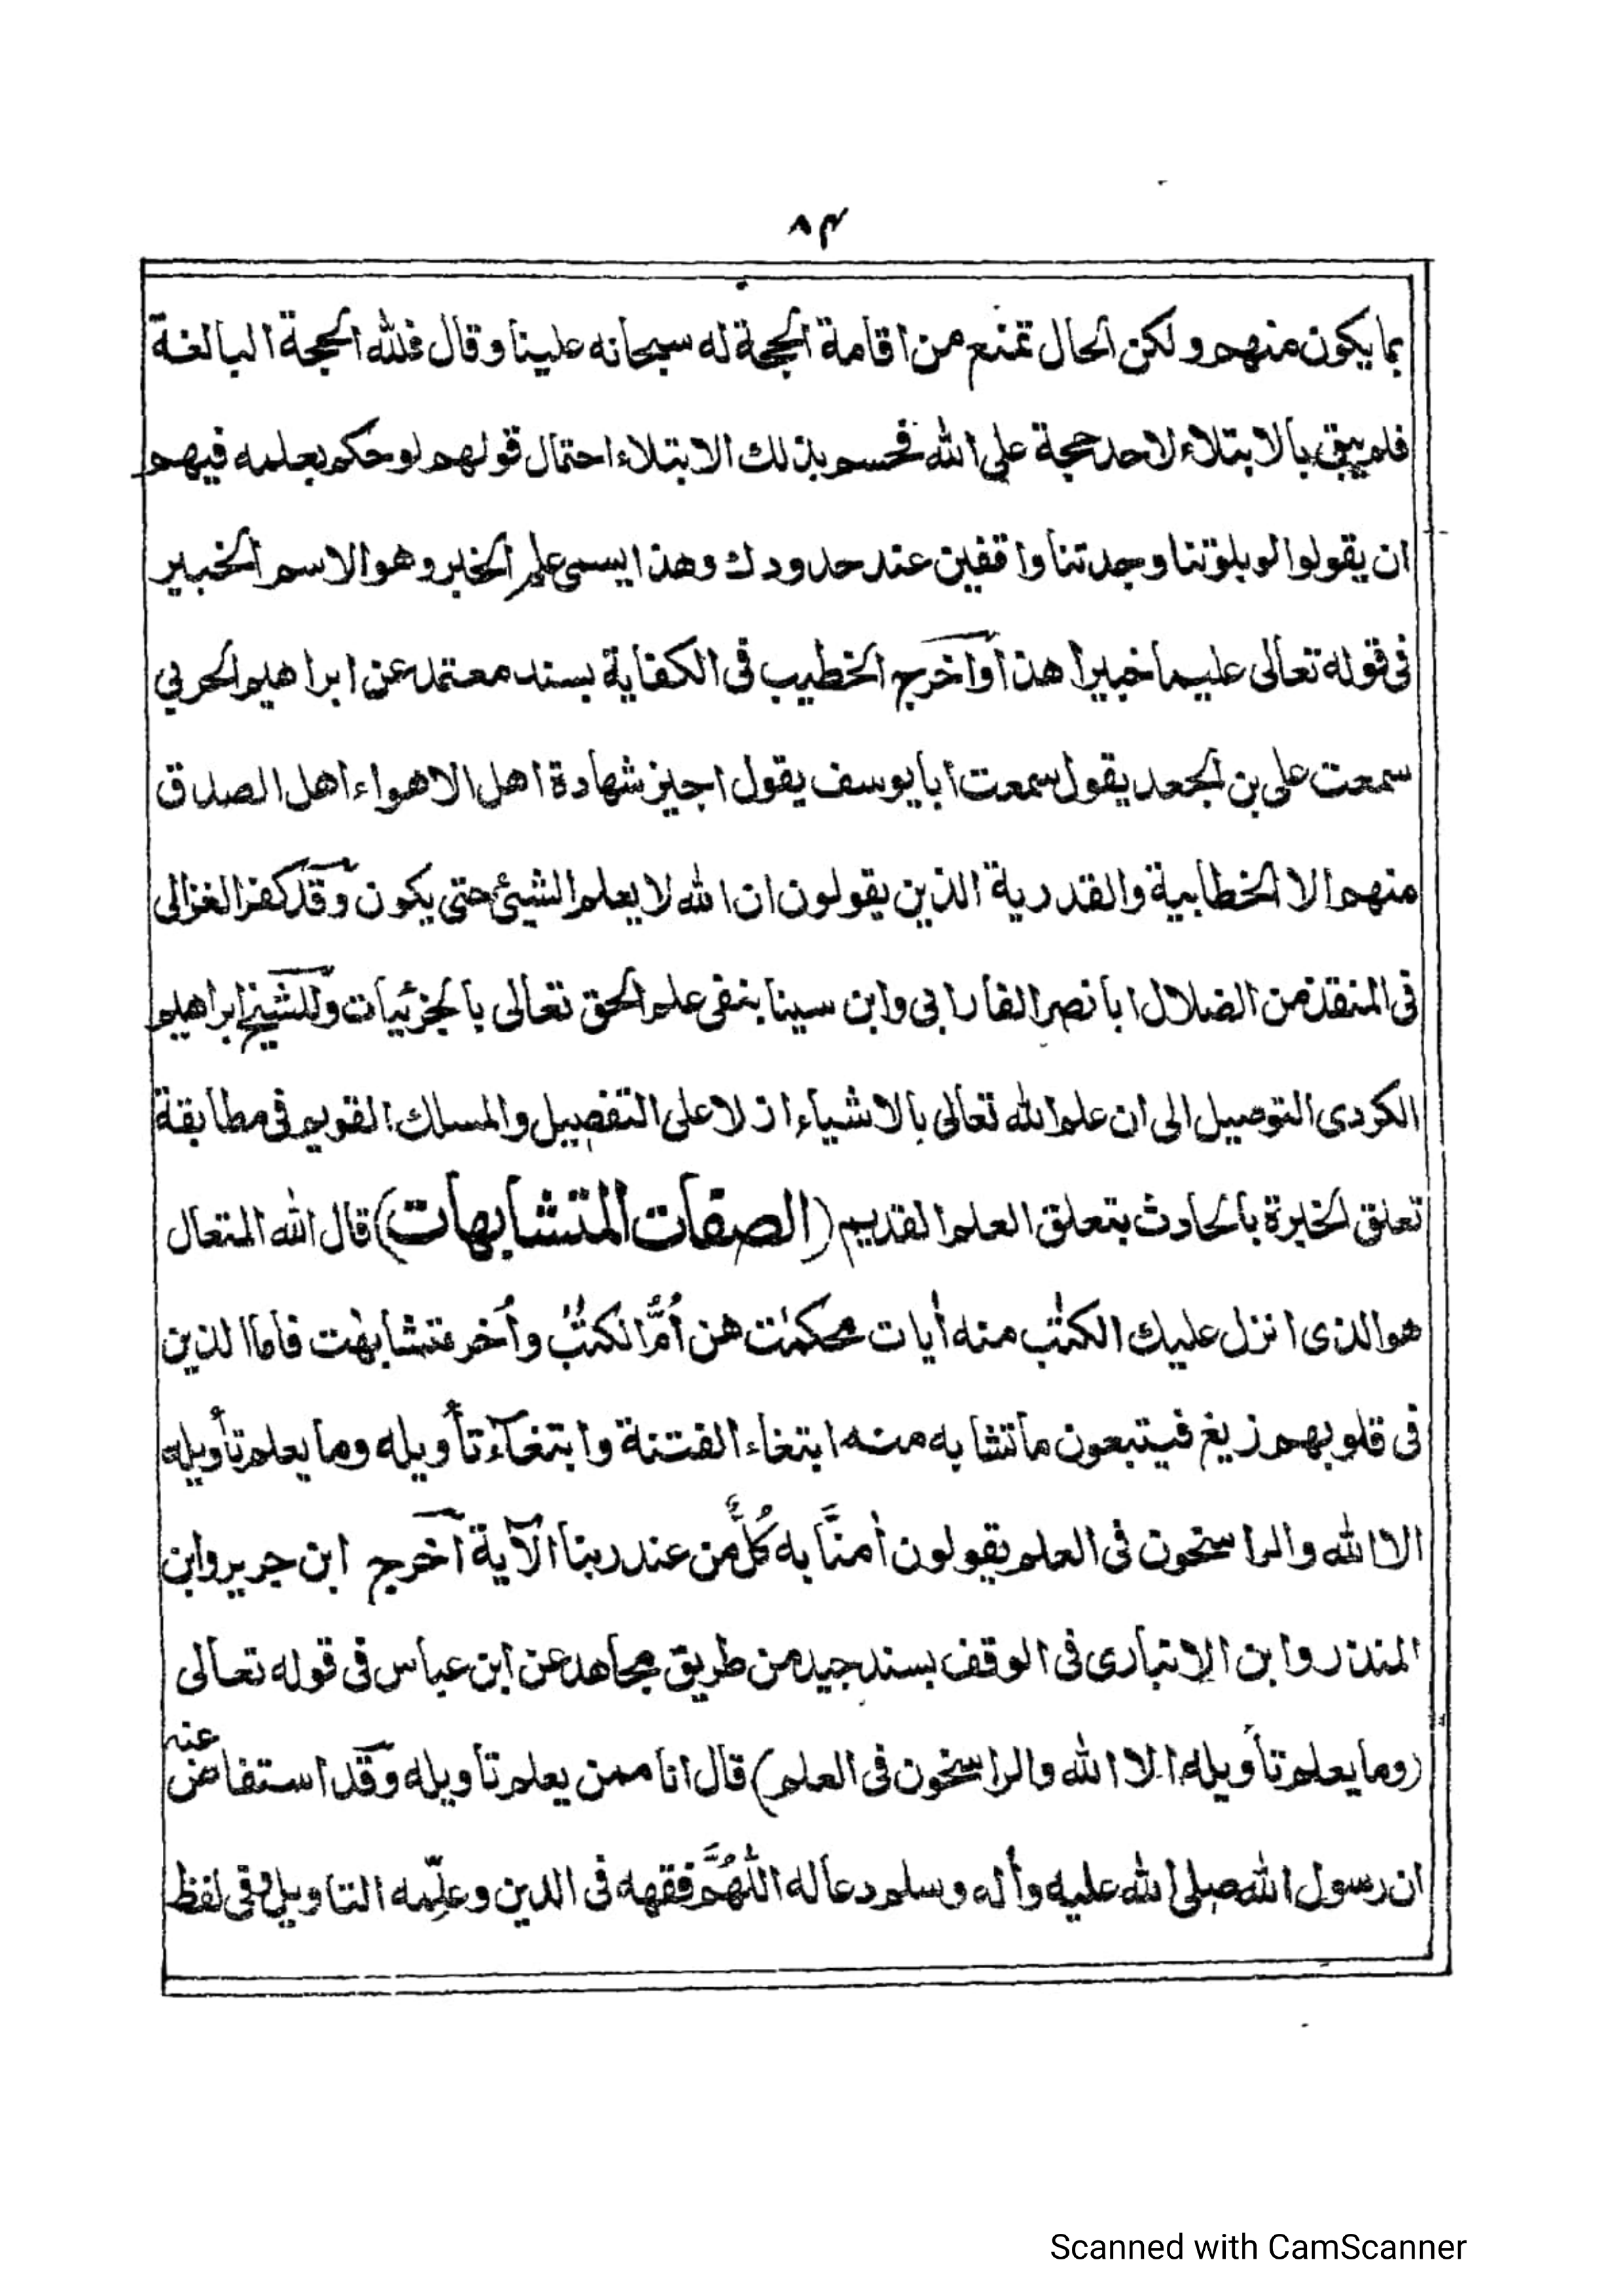 ٨٣
بما يكون منهم ولكن الحال تمنع من اقامة الحجة له سبحانه علينا وقال فلله الحجة البالغة
فلم يبق بالابتلاء لاحد حجة على الله فحسم بذلك الابتلاء احتمال قولهم لو حكم بعلمه فيهم
ان يقولوا لو بلوتنا وجدتنا واقفين عند حدودك وهذا يسمى علم الخبر وهو الاسم الخبير
فى قوله تعالى عليما خبيرا هذا واخرج الخطيب فى الكفاية بسند معتمد عن ابراهيم الحربي
سمعت على بن الجعد يقول سمعت أبا يوسف يقول اجيز شهادة اهل الاهواء اهل الصدق
منهم الا الخطابية والقدرية الذين يقولون ان الله لا يعلم الشيئ حتى يكون وقد كفر الغزالى
فى المنقذ من الضلال ابا نصر الفارابى وابن سينا بنفى علم الحق تعالى بالجزئيات وللشيخ ابراهيم
الكردى التوصيل الى ان علم الله تعالى بالاشياء ازلا على التفصيل والمسلك القويم فى مطابقة
تعلق الخبرة بالحادث بتعلق العلم القديم (الصفات المتشابهات) قال الله المتعال
هو الذى انزل عليك الكتٰب منه أيات محكمٰت هن أُمُّ الكتٰب وأُخر متشابهٰت فاما الذين
فى قلوبهم زيغ فيتبعون ما تشابه منه ابتغاء الفتنة وابتغآء تأويله وما يعلم تأويله
الا الله والراسخون فى العلم يقولون أمنَّا به كُلٌّ من عند ربنا الآية آخرج ابن جرير وابن
المنذر وابن الانبارى فى الوقف بسند جيد من طريق مجاهد عن ابن عباس فى قوله تعالى
(وما يعلم تأويله الا الله والراسخون فى العلم) قال انا ممن يعلم تأويله وقد استفاض عنه
ان رسول الله صلى الله عليه وأله وسلم دعا له اللّٰهُمَّ فقهه فى الدين وعلِّمه التاويل وفى لفظ
Scanned with CamScanner